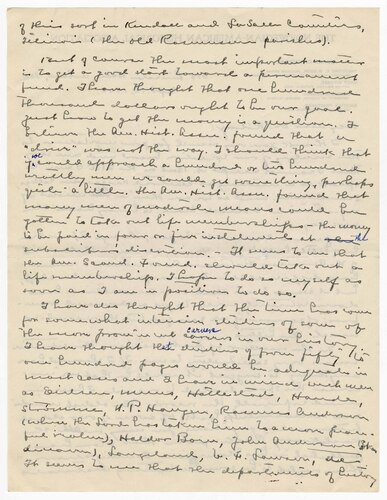 of this sort in Kendall and LaSalle Counties,
Illinois (the old Rasmussen parishes).
But of course the most important matter
is to get a good start toward a permanent
fund. I have thought that one hundred
thousand dollars ought to be our goal.
Just how to get the money is a question. I
believe the Am. Hist. Assn. found that a
"drive" was not the way. I should think that
we could approach a hundred or two hundred
wealthy men we could get something, perhaps
quite a little. The Am. Hist. Assn. found that
many men of modest means could be
gotten to take out life memberships - the money
to be paid in four or five installments at the
subscribers' discretion. - It seems to me that
the Am. Scand. Found. should take out a
life membership. I hope to do so myself as
soon as I am in position to do so.
I have also thought that the time has come
for somewhat intensive studies of some of
the more prominent careers in our history.
I have thought that studies of from fifty to
one hundred pages would be adequate in
most cases and I have in mind such men
as Dietrichson, Hatlestad, Hande,
Strømme, N. P. Haugen, Rasmus Anderson
(when the Lord has taken him to a more peaceful
realm), Haldor Boen, John Anderson
Langeland, V. F. Lawson,
It seems to me that the departments of history